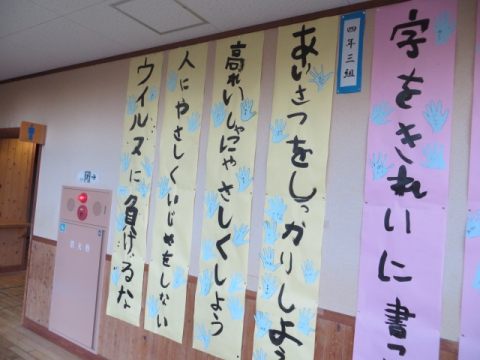 字をきれいに書
四年三組
あいさつをしっかりしよう
高れいしゃにやさしくしよう
人にやさしくいじめをしない
ウイルスに負けるな
消火栓